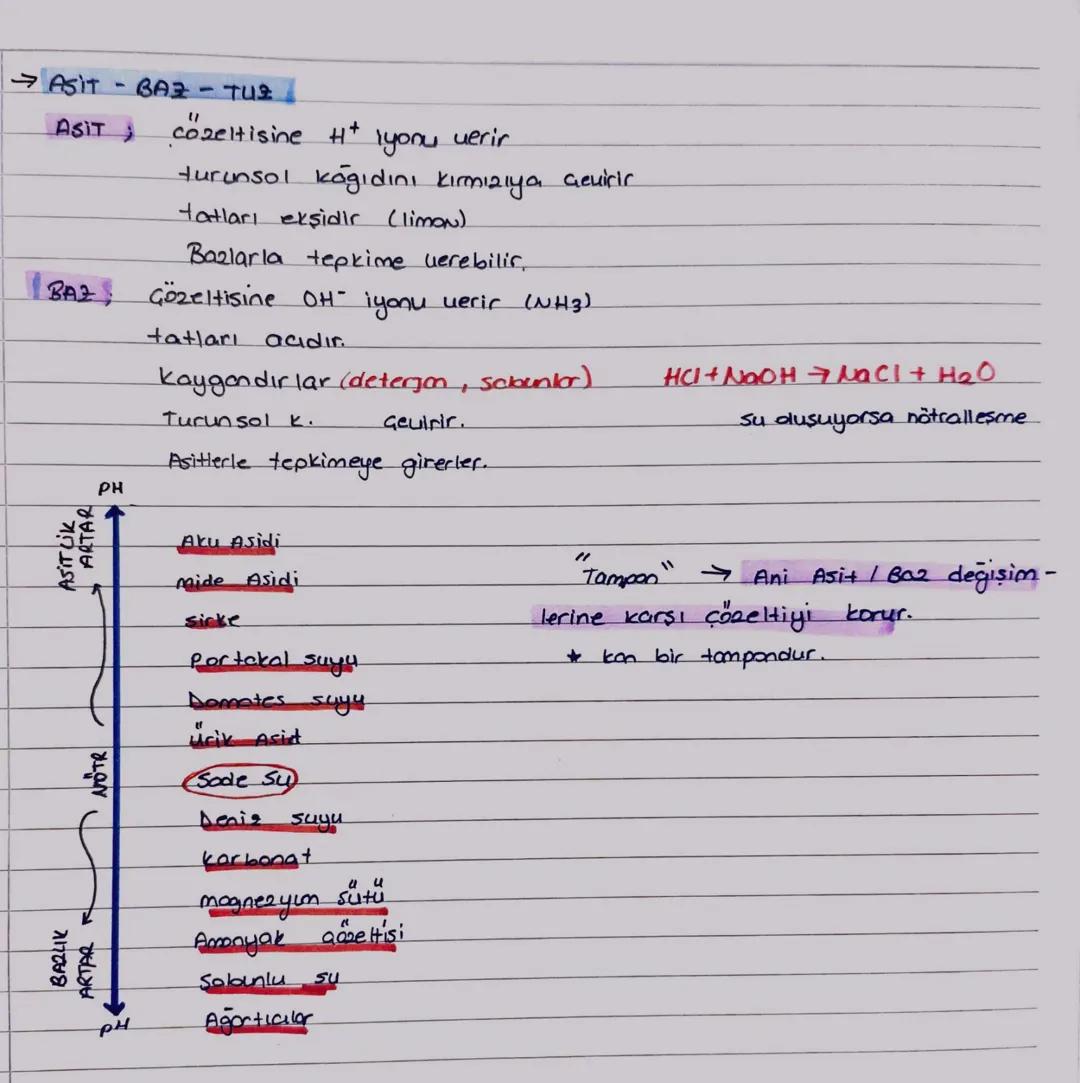 → ASİT - BAZ - TUZ
ASİT ; çözeltisine H⁺ iyonu verir
turunsol kağıdını kırmızıya çevirir
tatları ekşidir (limon)
Bazlarla tepkime verebilir.
BAZ ; çözeltisine OH⁻ iyonu verir (NH3)
tatları acıdır.
Kaygandırlar (deterjan, sabunlar) HCl + NaOH → NaCl + H2O
Turunsol k. çevirir. su oluşuyorsa nötralleşme
Asitlerle tepkimeye girerler.
PH
ASİTLİK ARTAR
Akü Asidi
mide Asidi
sirke
Portakal suyu
Domates suyu
ürik Asit
NÖTR
Sade su
Deniz suyu
karbonat
magnezyum sütü
Amonyak çözeltisi
Sabunlu su
Ağartıcılar
BAZLIK ARTAR
pH
"Tampon" → Ani Asit / Baz değişim-
lerine karşı çözeltiyi korur.
* kan bir tampondur.